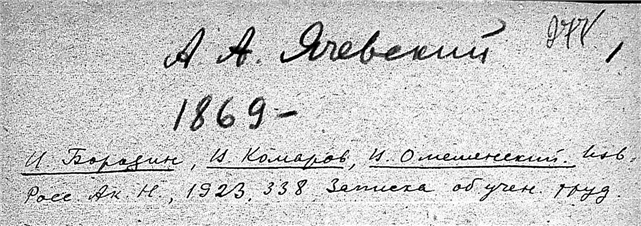 А А. Ячевский
1869-
И Бородин, И Комаров, И. Омешенский. Изв.
Росс. Ак. Н., 1923, 338 Записка об учен. труд.